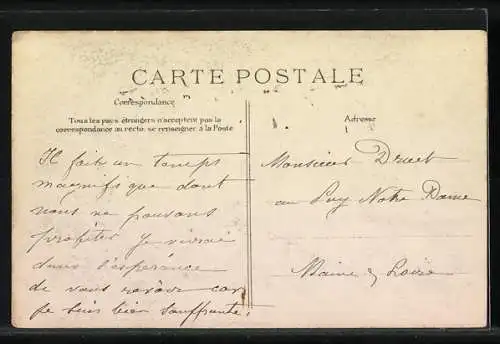 CARTE POSTALE
Correspondance
Tous les pays étrangers n'acceptent pas la
correspondance au recto, se renseigner à la Poste
Il fait un temps
magnifique dont
nous ne pouvons
profiter je vivrai
dans l'espérance
de vous revoir car
je suis bien souffrante.
Adresse
Monsieur Druet
au Puy Notre Dame
Maine & Loire